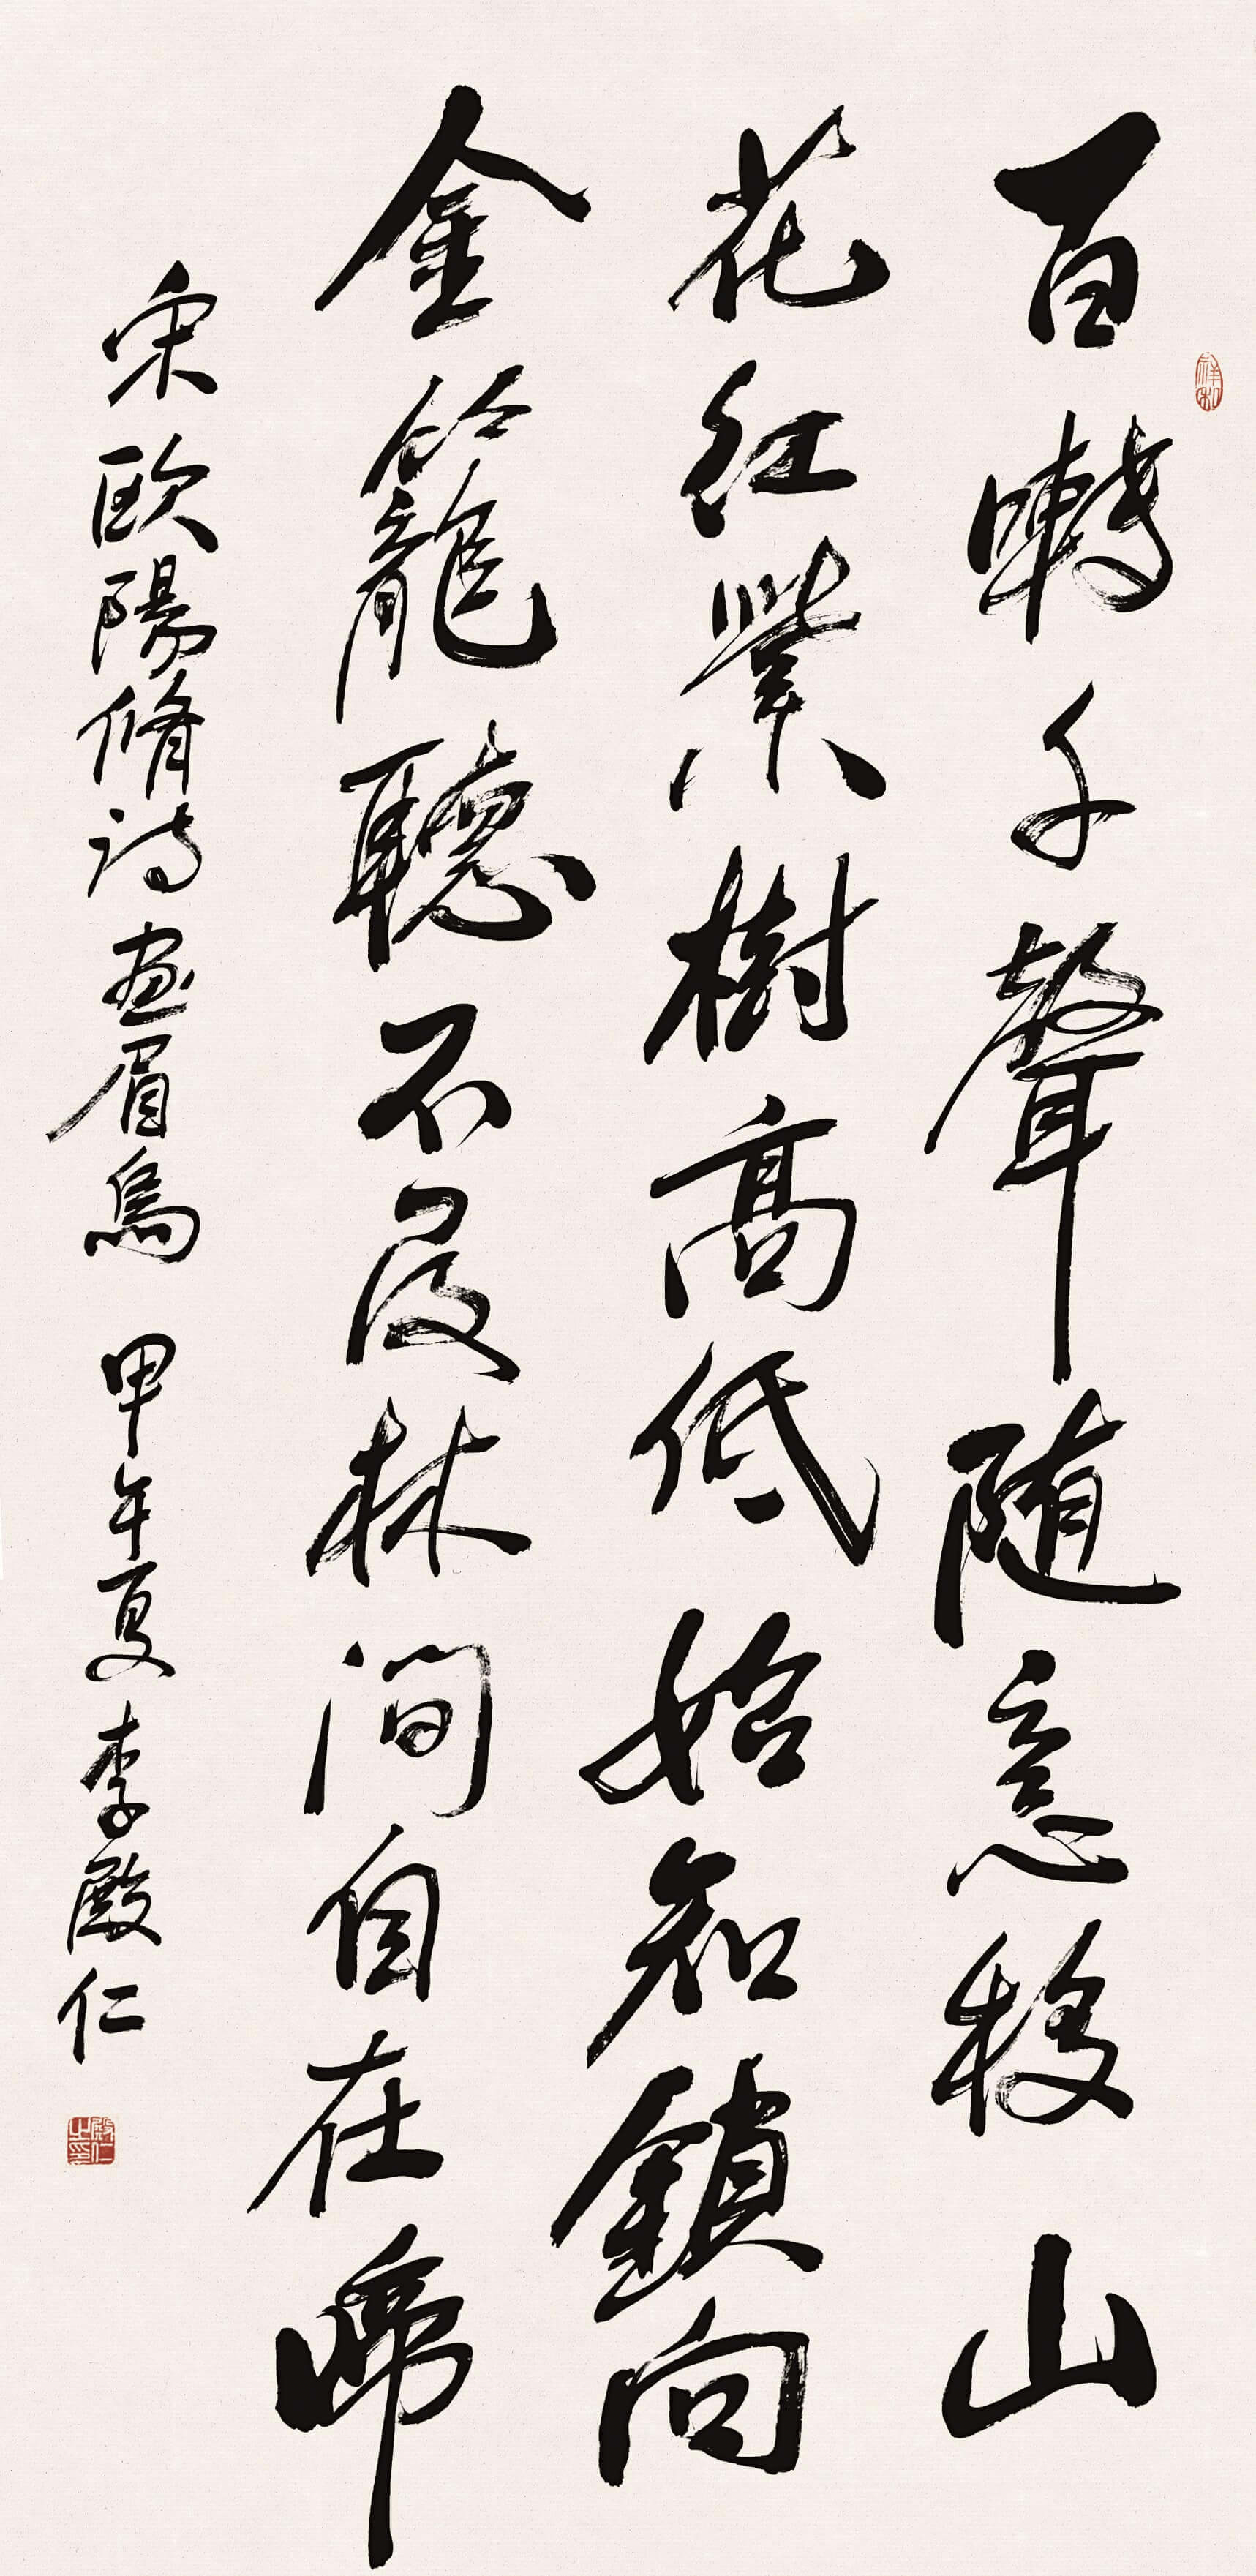 百囀千聲随意移山
花红紫樹高低始知鎖向
金籠聽不及林間自在啼
宋歐陽脩詩画眉鳥 甲午夏李殿仁
祥和
殿仁之印